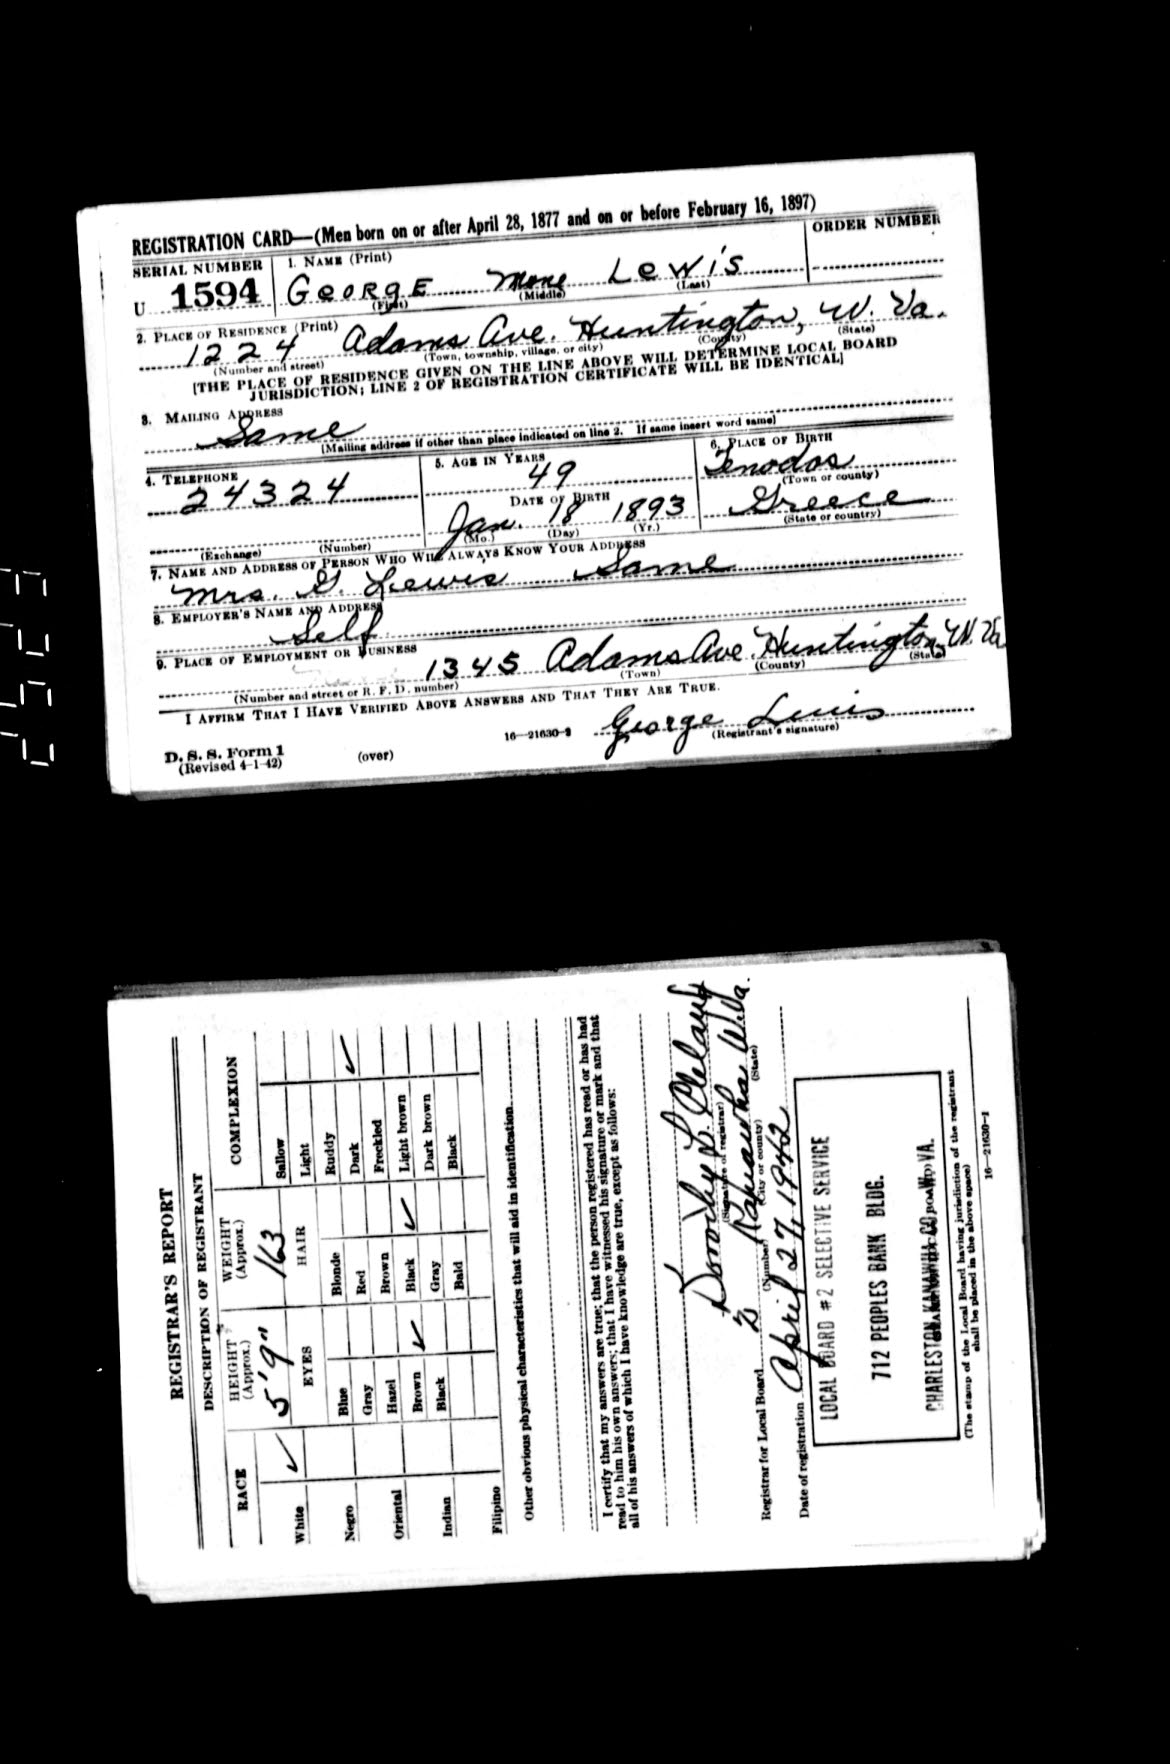 REGISTRATION CARD—(Men born on or after April 28, 1877 and on or before February 16, 1897)
SERIAL NUMBER
U 1594
1. NAME (Print)
GEORGE None LEWIS
(First) (Middle) (Last)
ORDER NUMBER
2. PLACE OF RESIDENCE (Print)
1224 Adams Ave. Huntington, W. Va.
(Number and street) (Town, township, village, or city) (County) (State)
[THE PLACE OF RESIDENCE GIVEN ON THE LINE ABOVE WILL DETERMINE LOCAL BOARD
JURISDICTION; LINE 2 OF REGISTRATION CERTIFICATE WILL BE IDENTICAL]
3. MAILING ADDRESS
Same
[Mailing address if other than place indicated on line 2. If same insert word same]
4. TELEPHONE
24324
(Exchange) (Number)
5. AGE IN YEARS
49
DATE OF BIRTH
Jan. 18 1893
(Mo.) (Day) (Yr.)
6. PLACE OF BIRTH
Tenodos
(Town or county)
Greece
(State or country)
7. NAME AND ADDRESS OF PERSON WHO WILL ALWAYS KNOW YOUR ADDRESS
Mrs. G. Lewis Same
8. EMPLOYER'S NAME AND ADDRESS
Self
9. PLACE OF EMPLOYMENT OR BUSINESS
1345 Adams Ave. Huntington, W. Va
(Number and street or R. F. D. number) (Town) (County) (State)
I AFFIRM THAT I HAVE VERIFIED ABOVE ANSWERS AND THAT THEY ARE TRUE.
George Lewis
D. S. S. Form 1
(Revised 4-1-42) (over) 16—21630-2 (Registrant's signature)
REGISTRAR'S REPORT
DESCRIPTION OF REGISTRANT
RACE
HEIGHT (Approx.)
WEIGHT (Approx.)
COMPLEXION
White ✓
Negro
Oriental
Indian
Filipino
5'9"
163
EYES
Blue
Gray
Hazel
Brown ✓
Black
HAIR
Blonde
Red
Brown
Black ✓
Gray
Bald
Sallow
Light
Ruddy
Dark ✓
Freckled
Light brown
Dark brown
Black
Other obvious physical characteristics that will aid in identification
I certify that my answers are true; that the person registered has read or has had
read to him his own answers; that I have witnessed his signature or mark and that
all of his answers of which I have knowledge are true, except as follows:
Dorothy L. Cleland
(Signature of registrar)
Registrar for Local Board 2 Kanawha W.Va.
(Number) (City or county) (State)
Date of registration April 27, 1942
LOCAL BOARD #2 SELECTIVE SERVICE
712 PEOPLES BANK BLDG.
CHARLESTON KANAWHA CO. W. VA.
(The stamp of the Local Board having jurisdiction of the registrant
shall be placed in the above space)
16—21630-1